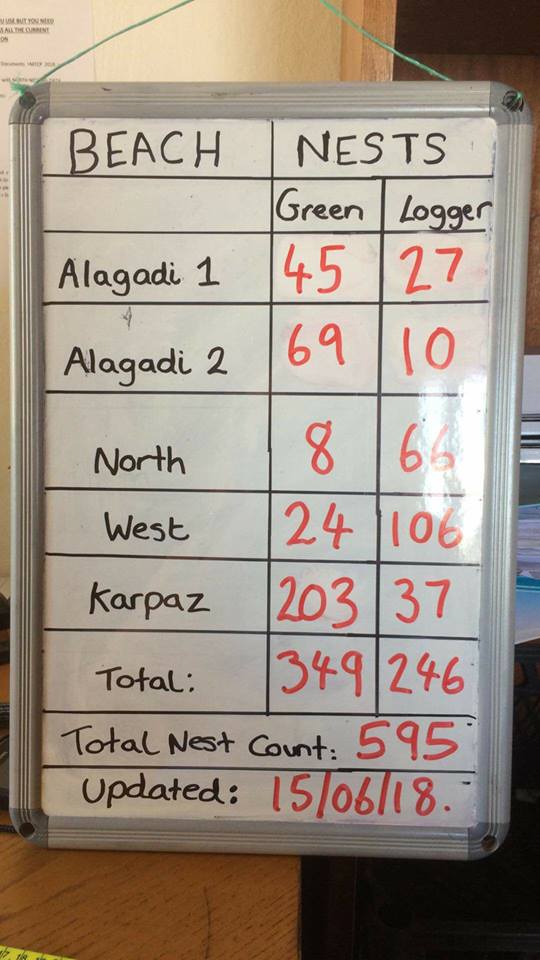 U USE BUT YOU NEED
S ALL THE CURRENT
ON
BEACH NESTS
Green Logger
Alagadi 1 45 27
Alagadi 2 69 10
North 8 66
West 24 106
Karpaz 203 37
Total: 349 246
Total Nest Count: 595
Updated: 15/06/18.